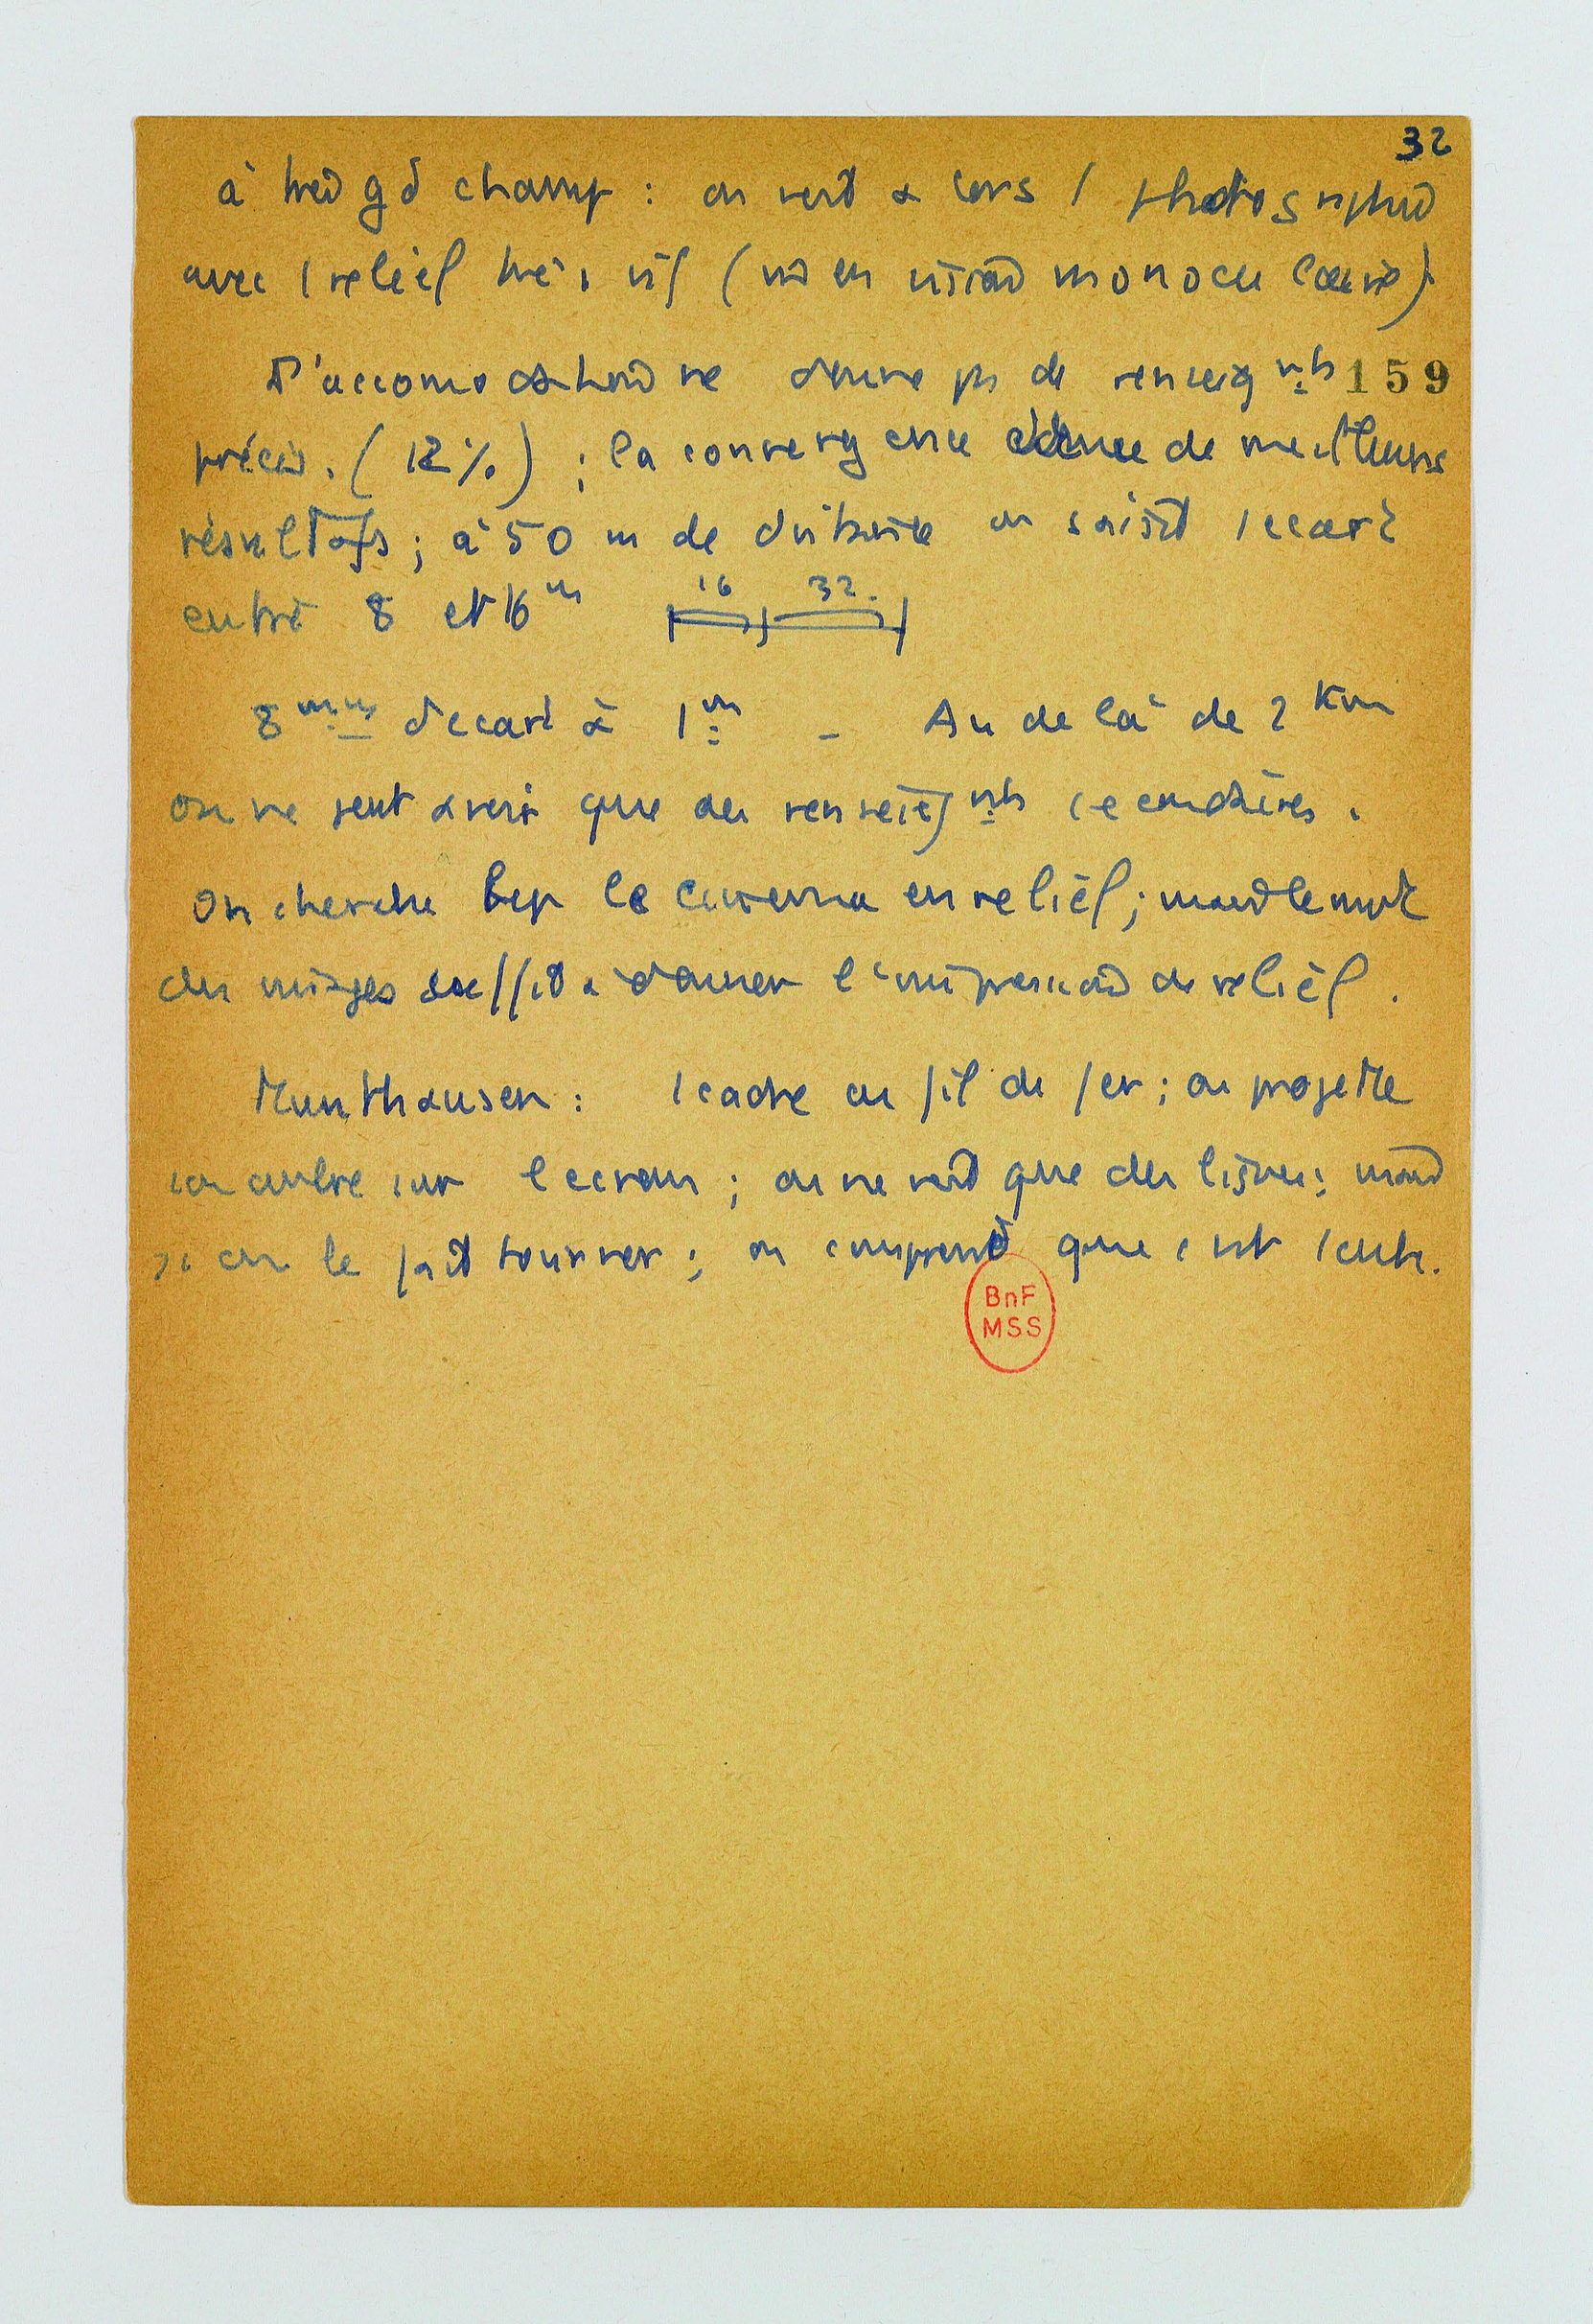 32
à très gd champ : on voit alors 1 photographie
avec 1 relief très vif (vu en vision monoculaire)
L'accomodation ne donne ps de renseigmts 159
précis. (12%) ; la convergence donne de meilleurs
résultats ; à 50 m de distance on saisit 1 ecart
entre 8 et 16 m 16 32.
8 mm d'ecart à 1 m - Au delà de 2 Km
on ne peut avoir que des renseigmts secondaires.
On cherche bcp le cinema en relief ; mais le mvt
des images suffit à donner l'impression de relief.
Munthausen : 1 cadre en fil de fer ; on projette
son ombre sur l ecran ; on ne voit que des lignes ; mais
si on le fait tourner ; on comprend que c'est 1 cube.
BnF
MSS